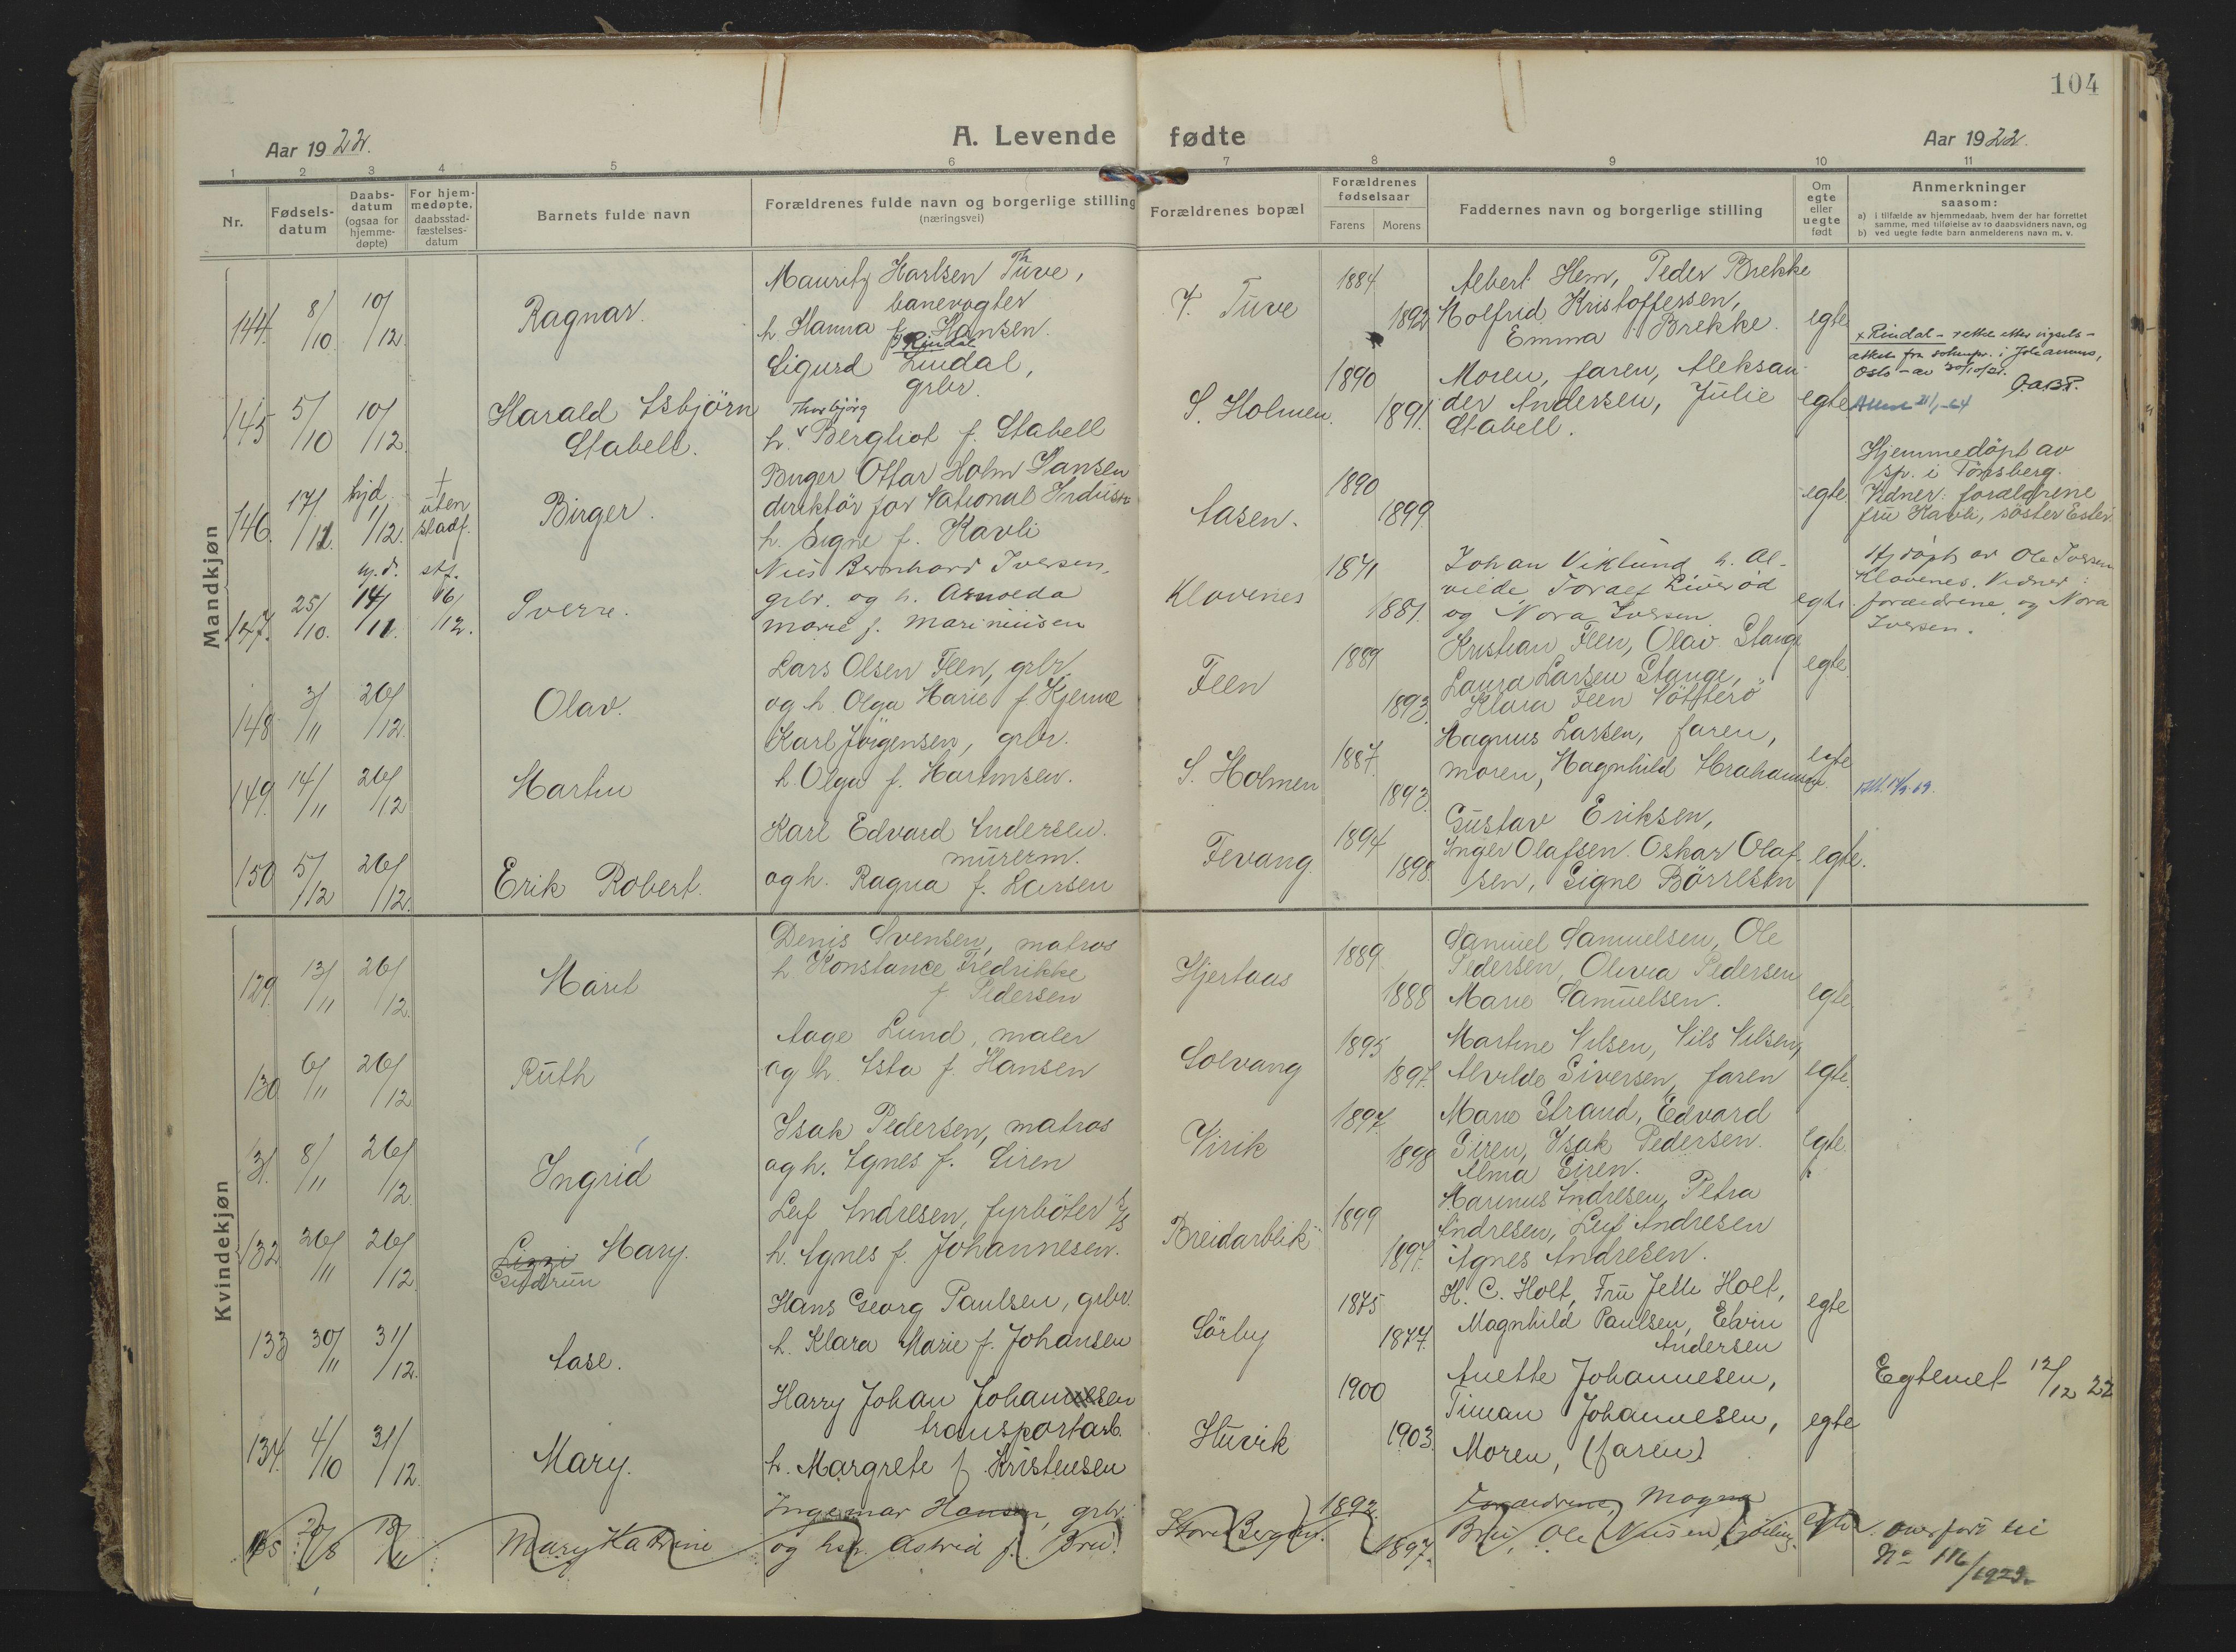 104
A. Levende fødte
Aar 1922.
Aar 1922.
1 2 3 4 5 6 7 8 9 10 11
Nr.
Fødsels-
datum
Daabs-
datum
(ogsaa for
hjemme-
døpte)
For hjem-
medøpte,
daabsstad-
fæstelses-
datum
Barnets fulde navn
Forældrenes fulde navn og borgerlige stilling
(næringsvei)
Forældrenes bopæl
Forældrenes
fødselsaar
Farens Morens
Faddernes navn og borgerlige stilling
Om
egte
eller
uegte
født
Anmerkninger
saasom:
a) i tilfælde av hjemmedaab, hvem der har forrettet
samme, med tilføielse av to daabsvidners navn, og
b) ved uegte fødte barn anmelderens navn m. v.
Mandkjøn
144. 8/10 10/12. Ragnar.
Mauritz Karlsen Tuve,
banevogter
h. Hanna f. Hansen.
Tuve 1884 1892
Albert Hem, Peder Brekke
Kristoffersen,
Emma Brekke.
egte
145 5/10 10/12.
Harald Asbjörn
Stabell.
Rindal
Sigurd Lindal,
grbr.
Thorbjørg
h. v Bergliot f. Stabell
S. Holmen. 1890 1891.
Moren, faren, Aleksan-
der Andersen, Julie
Stabell.
egte
x Rindal - rettet etter vigsels-
attest fra
Oslo
146. 17/11. hjd. 1/12. + uten stadf.
Birger.
Birger Ottar Holm Hansen
direktör for National Industri
h. Signe f. Kavli
Aasen. 1890 1899.
egte.
Hjemmedöpt av
sp. i Tönsberg.
Vidner: forældrene
fru Kavli, söster Ester.
147. 25/10. hj.d. 14/11. stf. 16/12.
Sverre.
Nils Bernhard Iversen,
grbr. og h. Arnolda
Marie f. Mariniusen
Klavenes 1871 1881.
Johan Viklund, h. Al-
vilde, Toralf Liverød
og Nora Iversen.
egte.
Hj.døpt av Ole Iversen
Klavenes. Vidner:
forældrene og Nora
Iversen.
148 3/11 26/12. Olav.
Lars Olsen Feen, grbr.
og h. Olga Marie f. Hjerme
Feen 1889 1893.
Kristian Feen, Olav Stange
Laura Larsen Stange,
Klara Feen Nötterö
egte.
149. 14/11 26/12 Martin
Karl Jörgensen, grbr.
h. Olga f. Martinsen.
S. Holmen 1887. 1893.
Magnus Larsen, faren,
moren, Magnhild Abrahamsen.
egte
150 5/12 26/12. Erik Robert.
Karl Edvard Andersen.
murerm.
og h. Ragna f. Larsen
Fevang. 1894 1898.
Gustav Eriksen,
Inger Olafsen. Oskar Olaf-
sen, Signe Börresen
egte.
Kvindekjøn
129. 13/11 26/12. Marit
Denis Svensen, matros
h. Konstance Fredrikke
f. Pedersen
Hjertaas 1889. 1888
Samuel Samuelsen, Ole
Pedersen, Olivia Pedersen
Marie Samuelsen.
egte
130 6/11 26/12 Ruth
Aage Lund, maler
og h. Asta f. Hansen
Solvang 1895 1897.
Martine Nilsen, Nils Nilsen,
Alvilde Siversen, faren
egte.
31. 8/11 26/12. Ingrid
Isak Pedersen, matros
og h. Agnes f. Siren
Virik 1897. 1898
Marie Strand, Edvard
Siren, Isak Pedersen.
Alma Siren.
egte.
132 26/11 26/12
Lizzi Mary.
Gudrun
Leif Andresen, fyrböter
h. Agnes f. Johannesen.
Breidarblik 1899 1897.
Marinus Andresen, Petra
Andresen, Leif Andresen
Agnes Andresen.
133 30/11 31/12. Aase.
Hans Georg Paulsen, grbr.
h. Klara Marie f. Johansen
Sörby 1875 1877.
H. C. Holt, Fru Jelle Holt,
Magnhild Paulsen, Elvin
Andersen
egte
134. 4/10 31/12. Mary.
Harry Johan Johannesen
transportarb.
h. Margrete f. Kristensen
Huvik 1900 1903.
Anette Johannesen,
Timan Johannesen,
Moren, (faren).
egte
Egteviet 12/12 22
135. Mary Katrine
Ingemar Hansen, grbr.
og hst. Astrid f. Bru.
Store Bergan. 1892. 1897.
Forældrene, Magna
Bru, Ole Nilsen,
egte. overført til
No 116/1923.